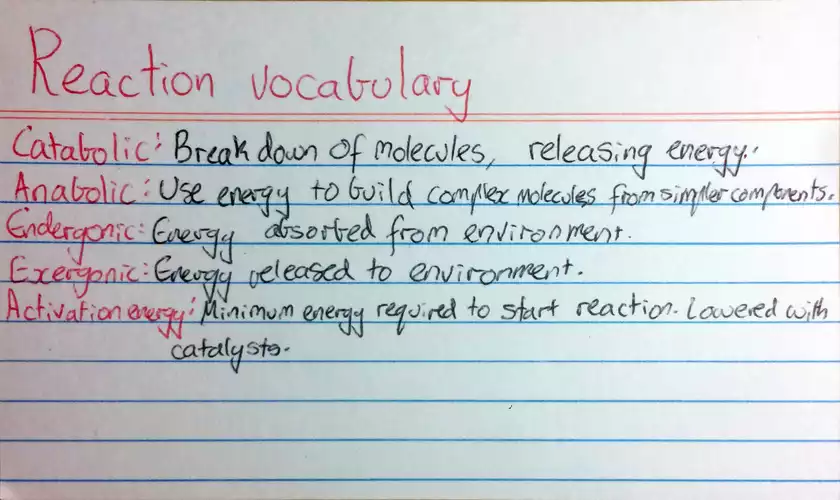 Reaction vocabulary
Catabolic: Break down of molecules, releasing energy.
Anabolic: Use energy to build complex molecules from simpler components.
Endergonic: Energy absorbed from environment.
Exergonic: Energy released to environment.
Activation energy: Minimum energy required to start reaction. Lowered with
catalysts.